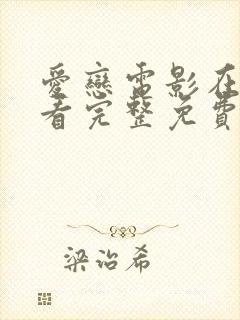 愛戀電影在
看完整免費
梁治希